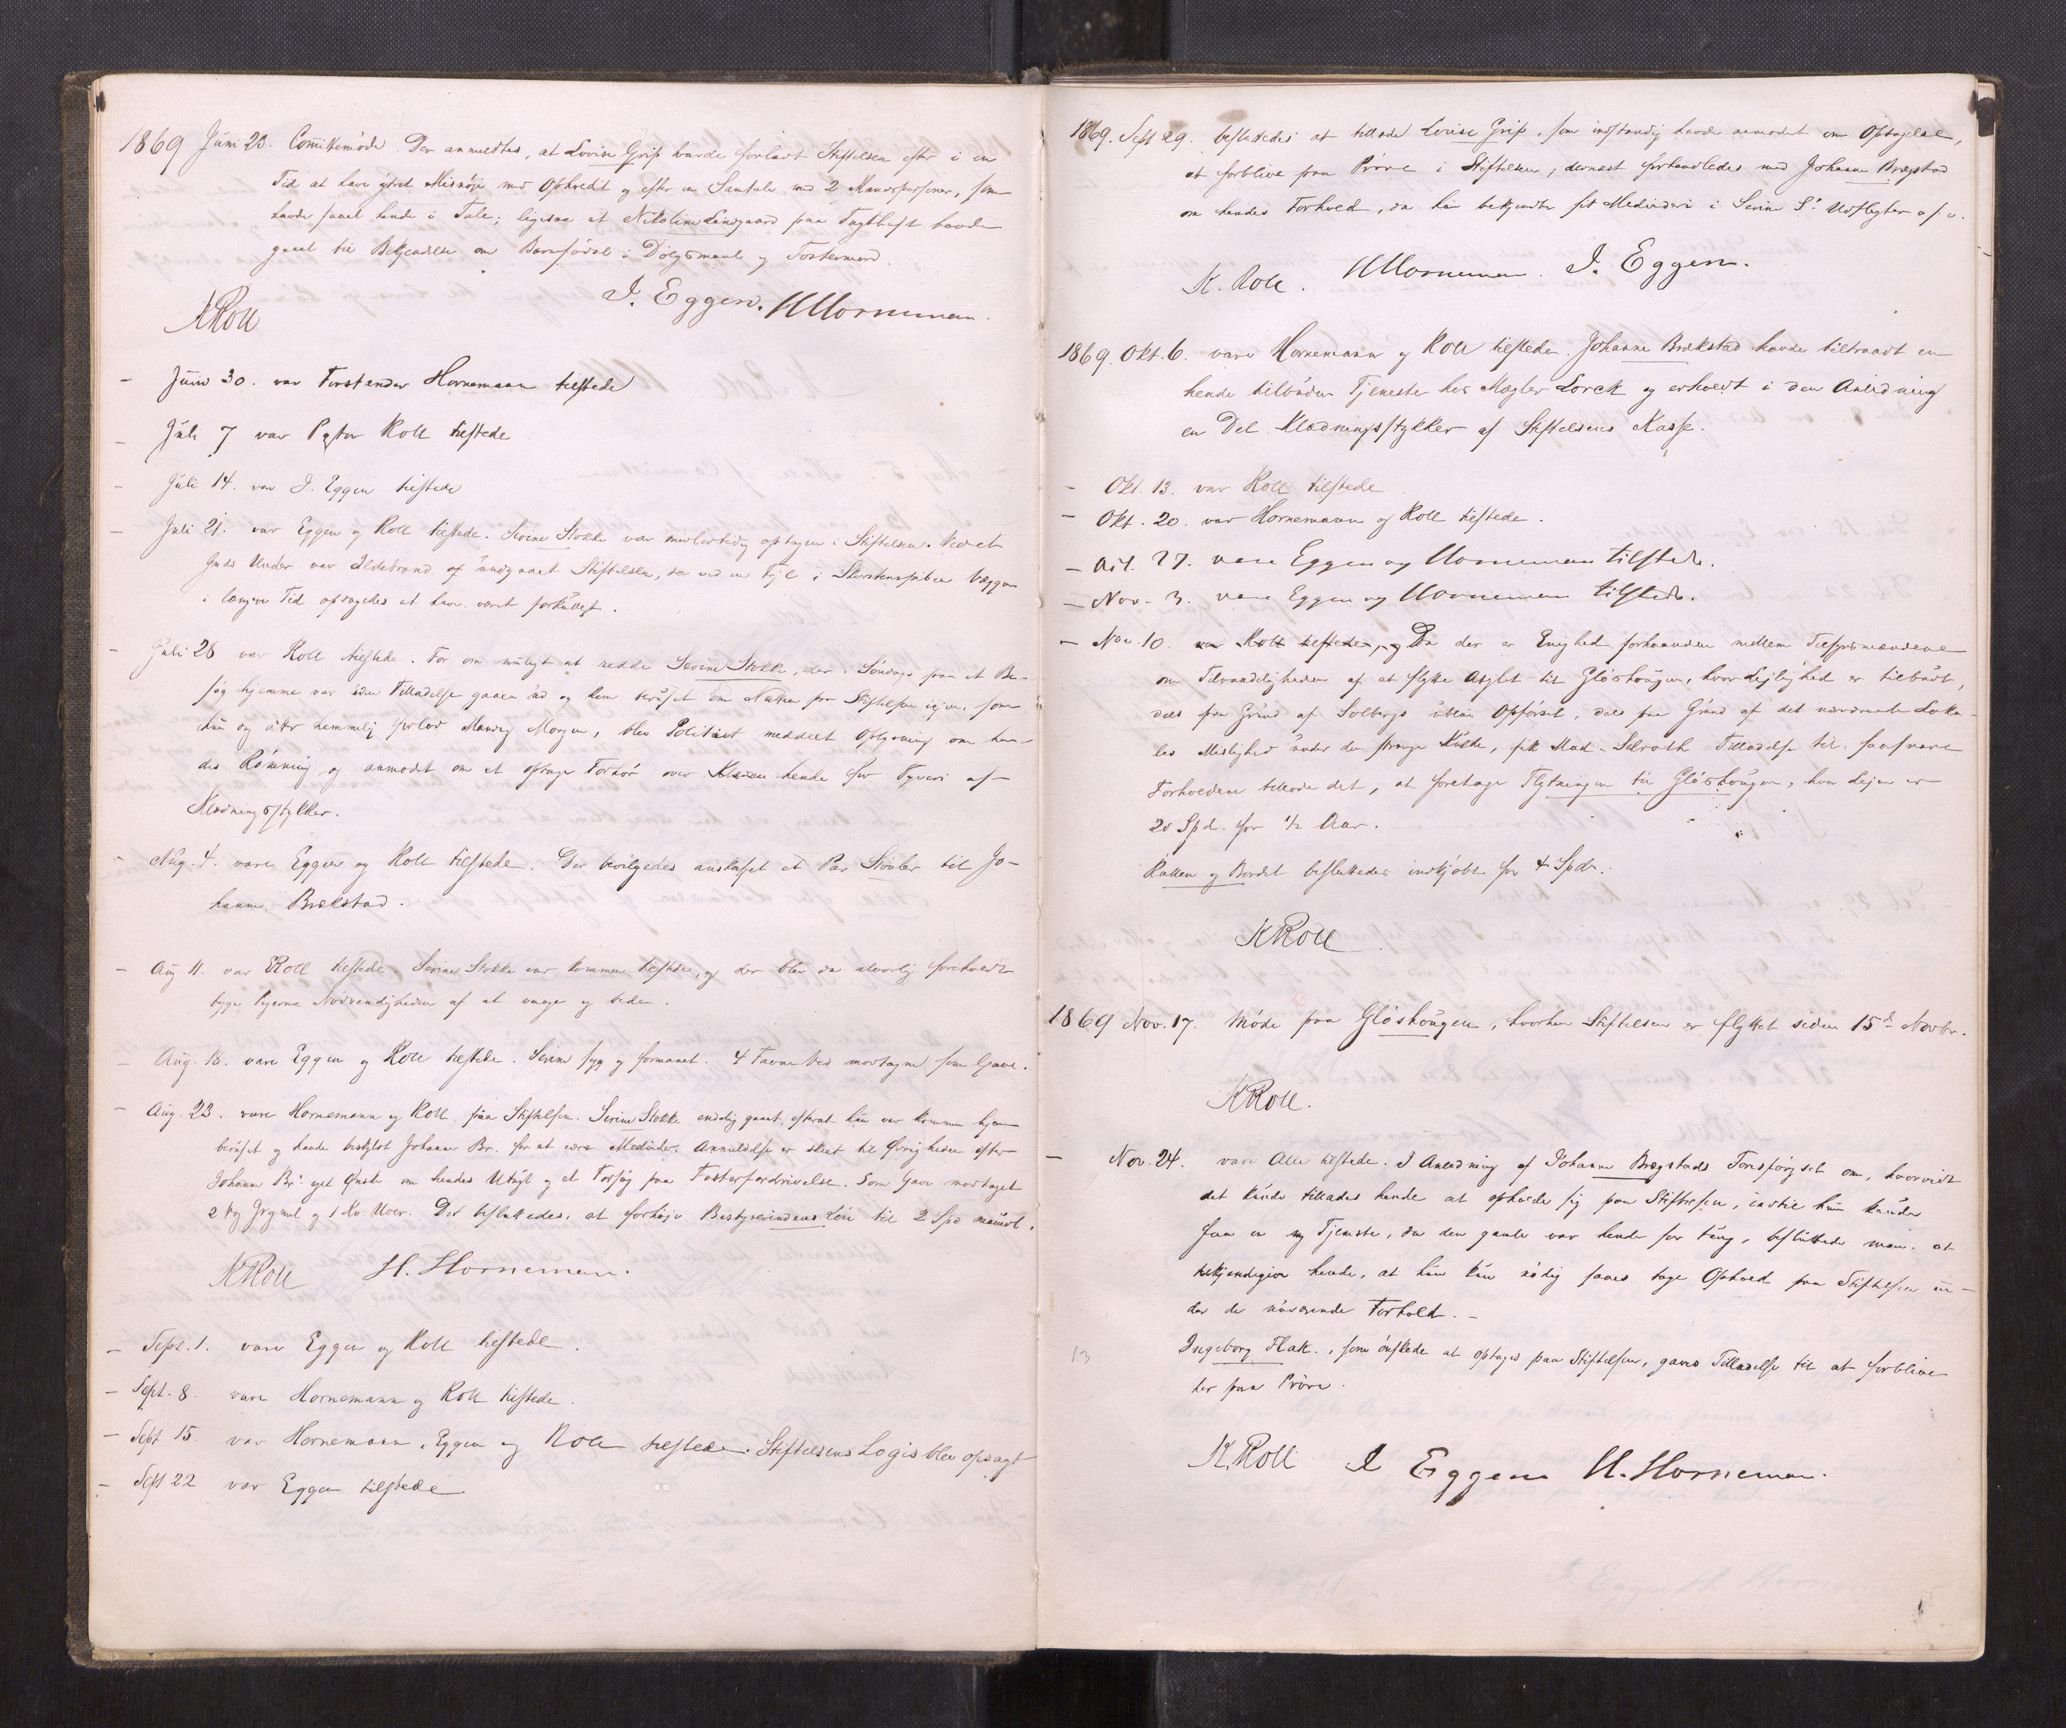 1869 Juni 23. Comitemöde. Der anmeldtes, at Lovise Grip havde forladt Stiftelsen efter i en
Tid at have ytret Misnöje med Opholdet og efter en Samtale med 2 Mandspersoner, som
havde faaet hende i Tale; ligesaa at Nikoline Lundgaard paa Tugthuset havde
gaaet til Bekjendelse om Barnefödsel i Dölgsmaal og Fostermord.
J. Eggen. H Hornemann.
KRoll
- Juni 30. var Forstander Hornemann tilstede
- Juli 7 var Pastor Roll tilstede
- Juli 14. var J. Eggen tilstede
- Juli 21. var Eggen og Roll tilstede. Serine Stokke var midlertidig optagen i Stiftelsen. Ved et
Guds Under var Ildebrand af undgaaet Stiftelsen, da ved en Fejl i Skorstenspiben Væggen
i længere Tid opdagedes at have været forkullet.
- Juli 28 var Roll tilstede. For om muligt at redde Serine Stokke, der i Söndags paa et Be-
søg hjemme var uden Tilladelse gaaen ud og kom beruset om Natten for Stiftelsen igjen, som
hun og atter hemmelig forlod Mandag Morgen, blev Politiet meddelt Oplysning om hen-
des Römning og anmodet om at optage Forhör over hende for Tyveri af
Klædningsstykker.
- Aug. 4. vare Eggen og Roll tilstede. Der bevilgedes anskaffet et Par Stövler til Jo-
hanne Brækstad.
- Aug 11. var KRoll tilstede. Serine Stokke var kommen tilstede, og der blev da alvorlig foreholdt
begge Pigerne Nödvendigheden af at vaage og bede.
- Aug. 18. vare Eggen og Roll tilstede. Serine syg og formanet. 4 Favne Ved modtagne som Gave.
- Aug. 23. vare Hornemann og Roll paa Stiftelsen. Serine Stokke endelig gaaet, efterat hun var kommen hjem
beruset og havde beskyldt Johanne Br. for at være Medvider. Anmeldelse er skeet til Øvrigheden efter
Johanne Br' eget Önske om hendes Utugt og et Forsøg paa Fosterfordrivelse. Som Gave modtaget
2 Vog Grynmel og 1 Kv. Mel. Det besluttedes, at forhöje Bestyrerindens Lön til 2 Spd maanedl.
KRoll H. Hornemann.
- Sept. 1. vare Eggen og Roll tilstede.
- Sept. 8. vare Hornemann og Roll tilstede.
- Sept 15. var Hornemann, Eggen og Roll tilstede. Stiftelsens Logis blev opsagt
- Sept 22 var Eggen tilstede
1869. Sept 29. besluttedes at tillade Lovise Grip, som indstændig havde anmodet om Optagelse,
at forblive paa Pröve i Stiftelsen, dernæst forhandledes med Johanne Brægstad
om hendes Forhold, da hun bekjendte sit Medvideri i Serine S' Udflugter o.s.v.
K. Roll. H Hornemann. J. Eggen.
1869. Okt. 6. vare Hornemann og Roll tilstede. Johanne Brækstad havde tiltraadt en
hende tilbuden Tjeneste hos Mægler Lorck og erholdt i den Anledning
en Del Klædningsstykker af Stiftelsens Kasse.
- Okt. 13. var Roll tilstede
- Okt. 20. var Hornemann og Roll tilstede.
- Oct. 27. vare Eggen og Hornemann tilstede.
- Nov. 3. vare Eggen og Hornemann tilstede.
- Nov. 10. var Roll tilstede, og Da der er Enighed forhaanden mellem Tilsynsmændene
om Tilraadeligheden af at flytte Asylet til Glöshaugen, hvor Lejlighed er tilbudt,
dels paa Grund af Solbergs Opförsel, dels paa Grund af det nuværende Loka-
les Mislighed under den strenge Kulde, fik Mad. Selroth Tilladelse til, saafremt
Forholdene tillode det, at foretage Flytningen til Glöshaugen, hvor Lejen er
20 Spd. for 1/2 Aar.
Kakkelen og Bordet besluttedes indkjöbt for 4 Spdr.
KRoll
1869 Nov. 17. Möde paa Glöshaugen, hvorhen Stiftelsen er flyttet siden 15d Novbr.
KRoll.
- Nov. 24. vare Alle tilstede. I Anledning af Johanne Brægstads Forespörgsel om, hvorvidt
det kunde tillades hende at opholde sig paa Stiftelsen, indtil hun kunde
faa en ny Tjeneste, da den gamle var hende for tung, besluttede man at
bekjendtgjøre hende, at hun kun nödig saaes tage Ophold paa Stiftelsen un-
der de nuværende Forhold. -
Ingeborg Flak., som önskede at optages paa Stiftelsen, gaves Tilladelse til at forblive
her paa Pröve.
13
K. Roll J Eggen H. Hornemann.